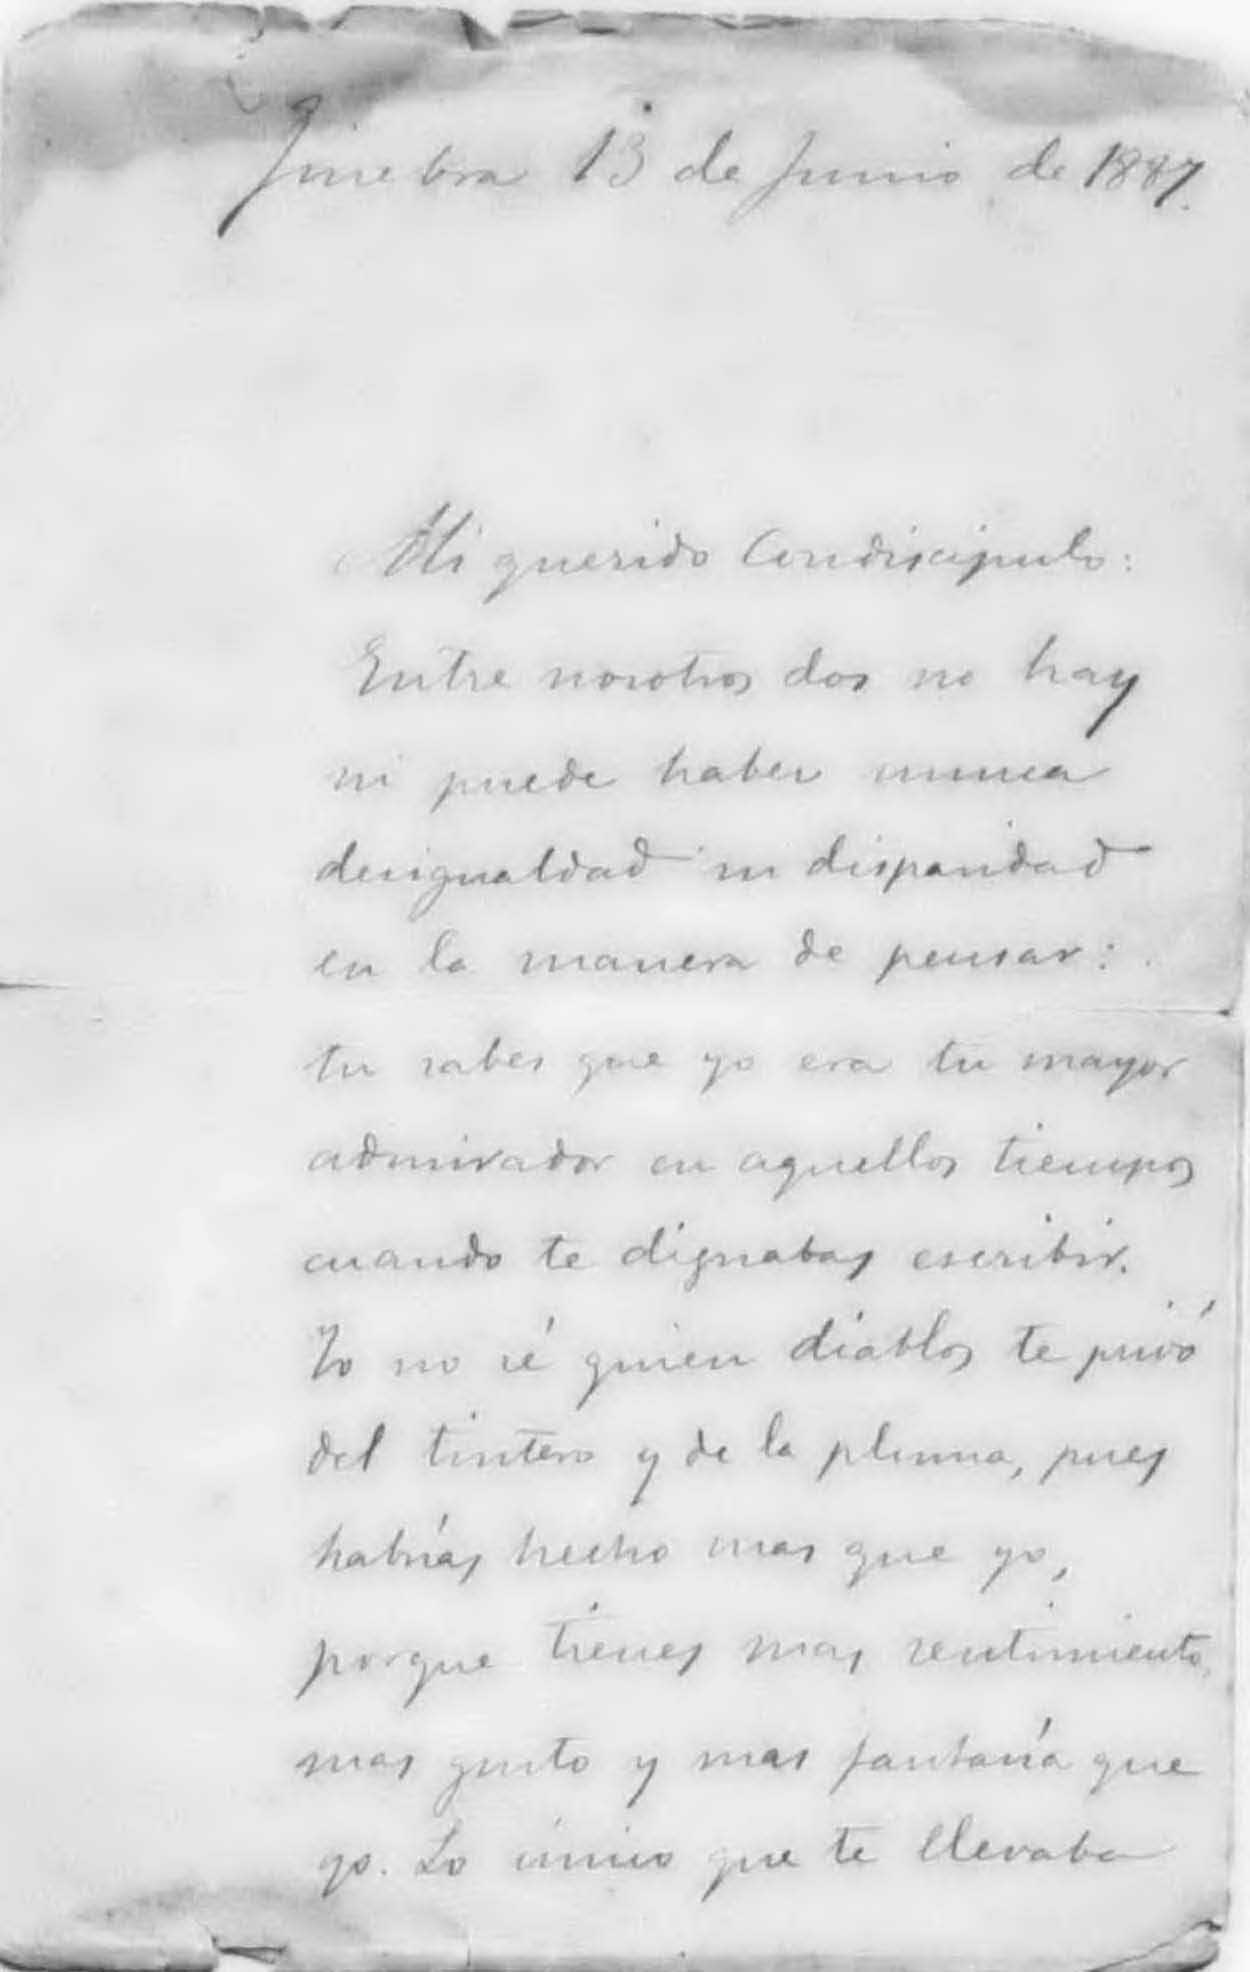 Jinebra 13 de Junio de 1887.
Mi querido Condiscipulo:
Entre nosotros dos no hay
ni puede haber nunca
desigualdad ni disparidad
en la manera de pensar:
tu sabes que yo era tu mayor
admirador en aquellos tiempos
cuando te dignabas escribir.
Yo no sé quien diablos te privó
del tintero y de la pluma, pues
habrías hecho mas que yo,
porque tienes mas sentimiento,
mas gusto y mas fantasía que
yo. Lo único que te llevaba